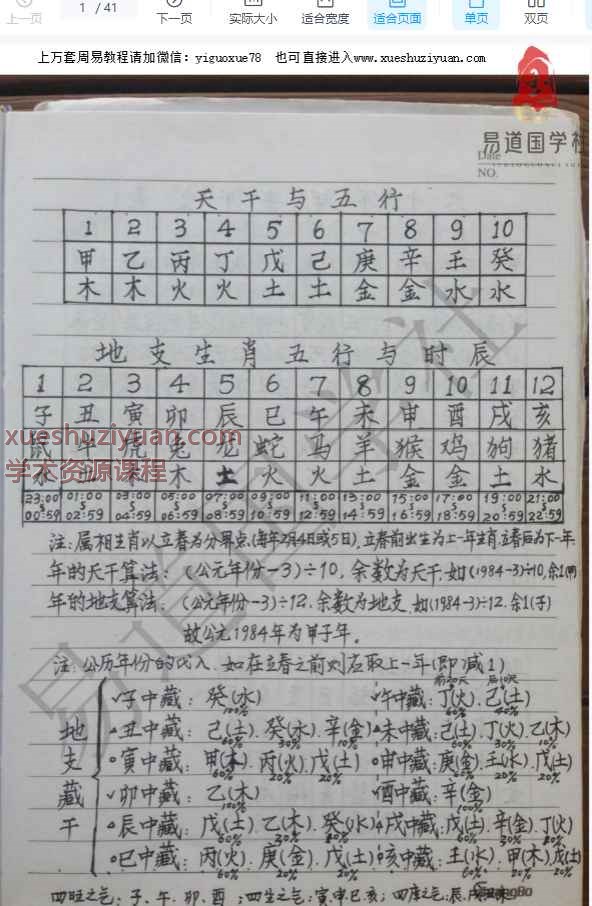 上一页 1 / 41 下一页 实际大小 适合宽度 适合页面 单页 双页
上万套周易教程请加微信：yiguoxue78 也可直接进入www.xueshuziyuan.com
易道国学社
Date
NO.
天干与五行
1 2 3 4 5 6 7 8 9 10
甲 乙 丙 丁 戊 己 庚 辛 壬 癸
木 木 火 火 土 土 金 金 水 水
地支生肖五行与时辰
1 2 3 4 5 6 7 8 9 10 11 12
子 丑 寅 卯 辰 巳 午 未 申 酉 戌 亥
鼠 牛 虎 兔 龙 蛇 马 羊 猴 鸡 狗 猪
xueshuziyuan.com
水 土 木 木 土 火 火 土 金 金 土 水
学术资源课程
23:00 01:00 03:00 05:00 07:00 09:00 11:00 13:00 15:00 17:00 19:00 21:00
00:59 02:59 04:59 06:59 08:59 10:59 12:59 14:59 16:59 18:59 20:59 22:59
注：属相生肖以立春为分界点(每年2月4日或5日)，立春前出生为上一年生肖，立春后为下一年.
年的天干算法：(公元年份-3)÷10，余数为天干，如(1984-3)÷10，余1(甲)
年的地支算法：(公元年份-3)÷12，余数为地支，如(1984-3)÷12，余1(子)
故公元1984年为甲子年。
注：公历年份的代入，如在立春之前则应取上一年(即减1)
前20天 后10天
地支藏干
子中藏：癸(水) 午中藏：丁(火)、己(土)
100% 60% 40%
丑中藏：己(土)、癸(水)、辛(金) 未中藏：己(土)、丁(火)、乙(木)
60% 30% 10% 60% 30% 10%
寅中藏：甲(木)、丙(火)、戊(土) 申中藏：庚(金)、壬(水)、戊(土)
60% 20% 20% 60% 20% 20%
卯中藏：乙(木) 酉中藏：辛(金)
100% 100%
辰中藏：戊(土)、乙(木)、癸(水) 戌中藏：戊(土)、辛(金)、丁(火)
60% 20% 20% 60% 30% 20%
巳中藏：丙(火)、庚(金)、戊(土) 亥中藏：壬(水)、甲(木)、戊(土)
60% 20% 20% 60% 20% 20%
四旺之气：子、午、卯、酉；四生之气：寅、申、巳、亥；四库之气：辰、戌
易道国学社